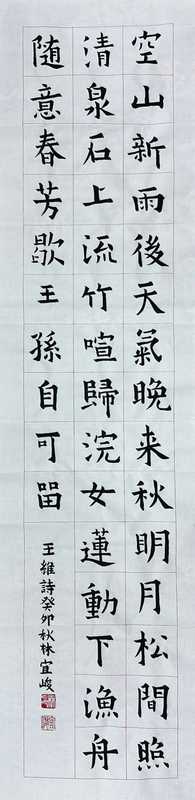 空山新雨後天氣晚来秋明月松間照
清泉石上流竹喧歸浣女蓮動下漁舟
随意春芳歇王孫自可留
王維詩癸卯秋林宜峻